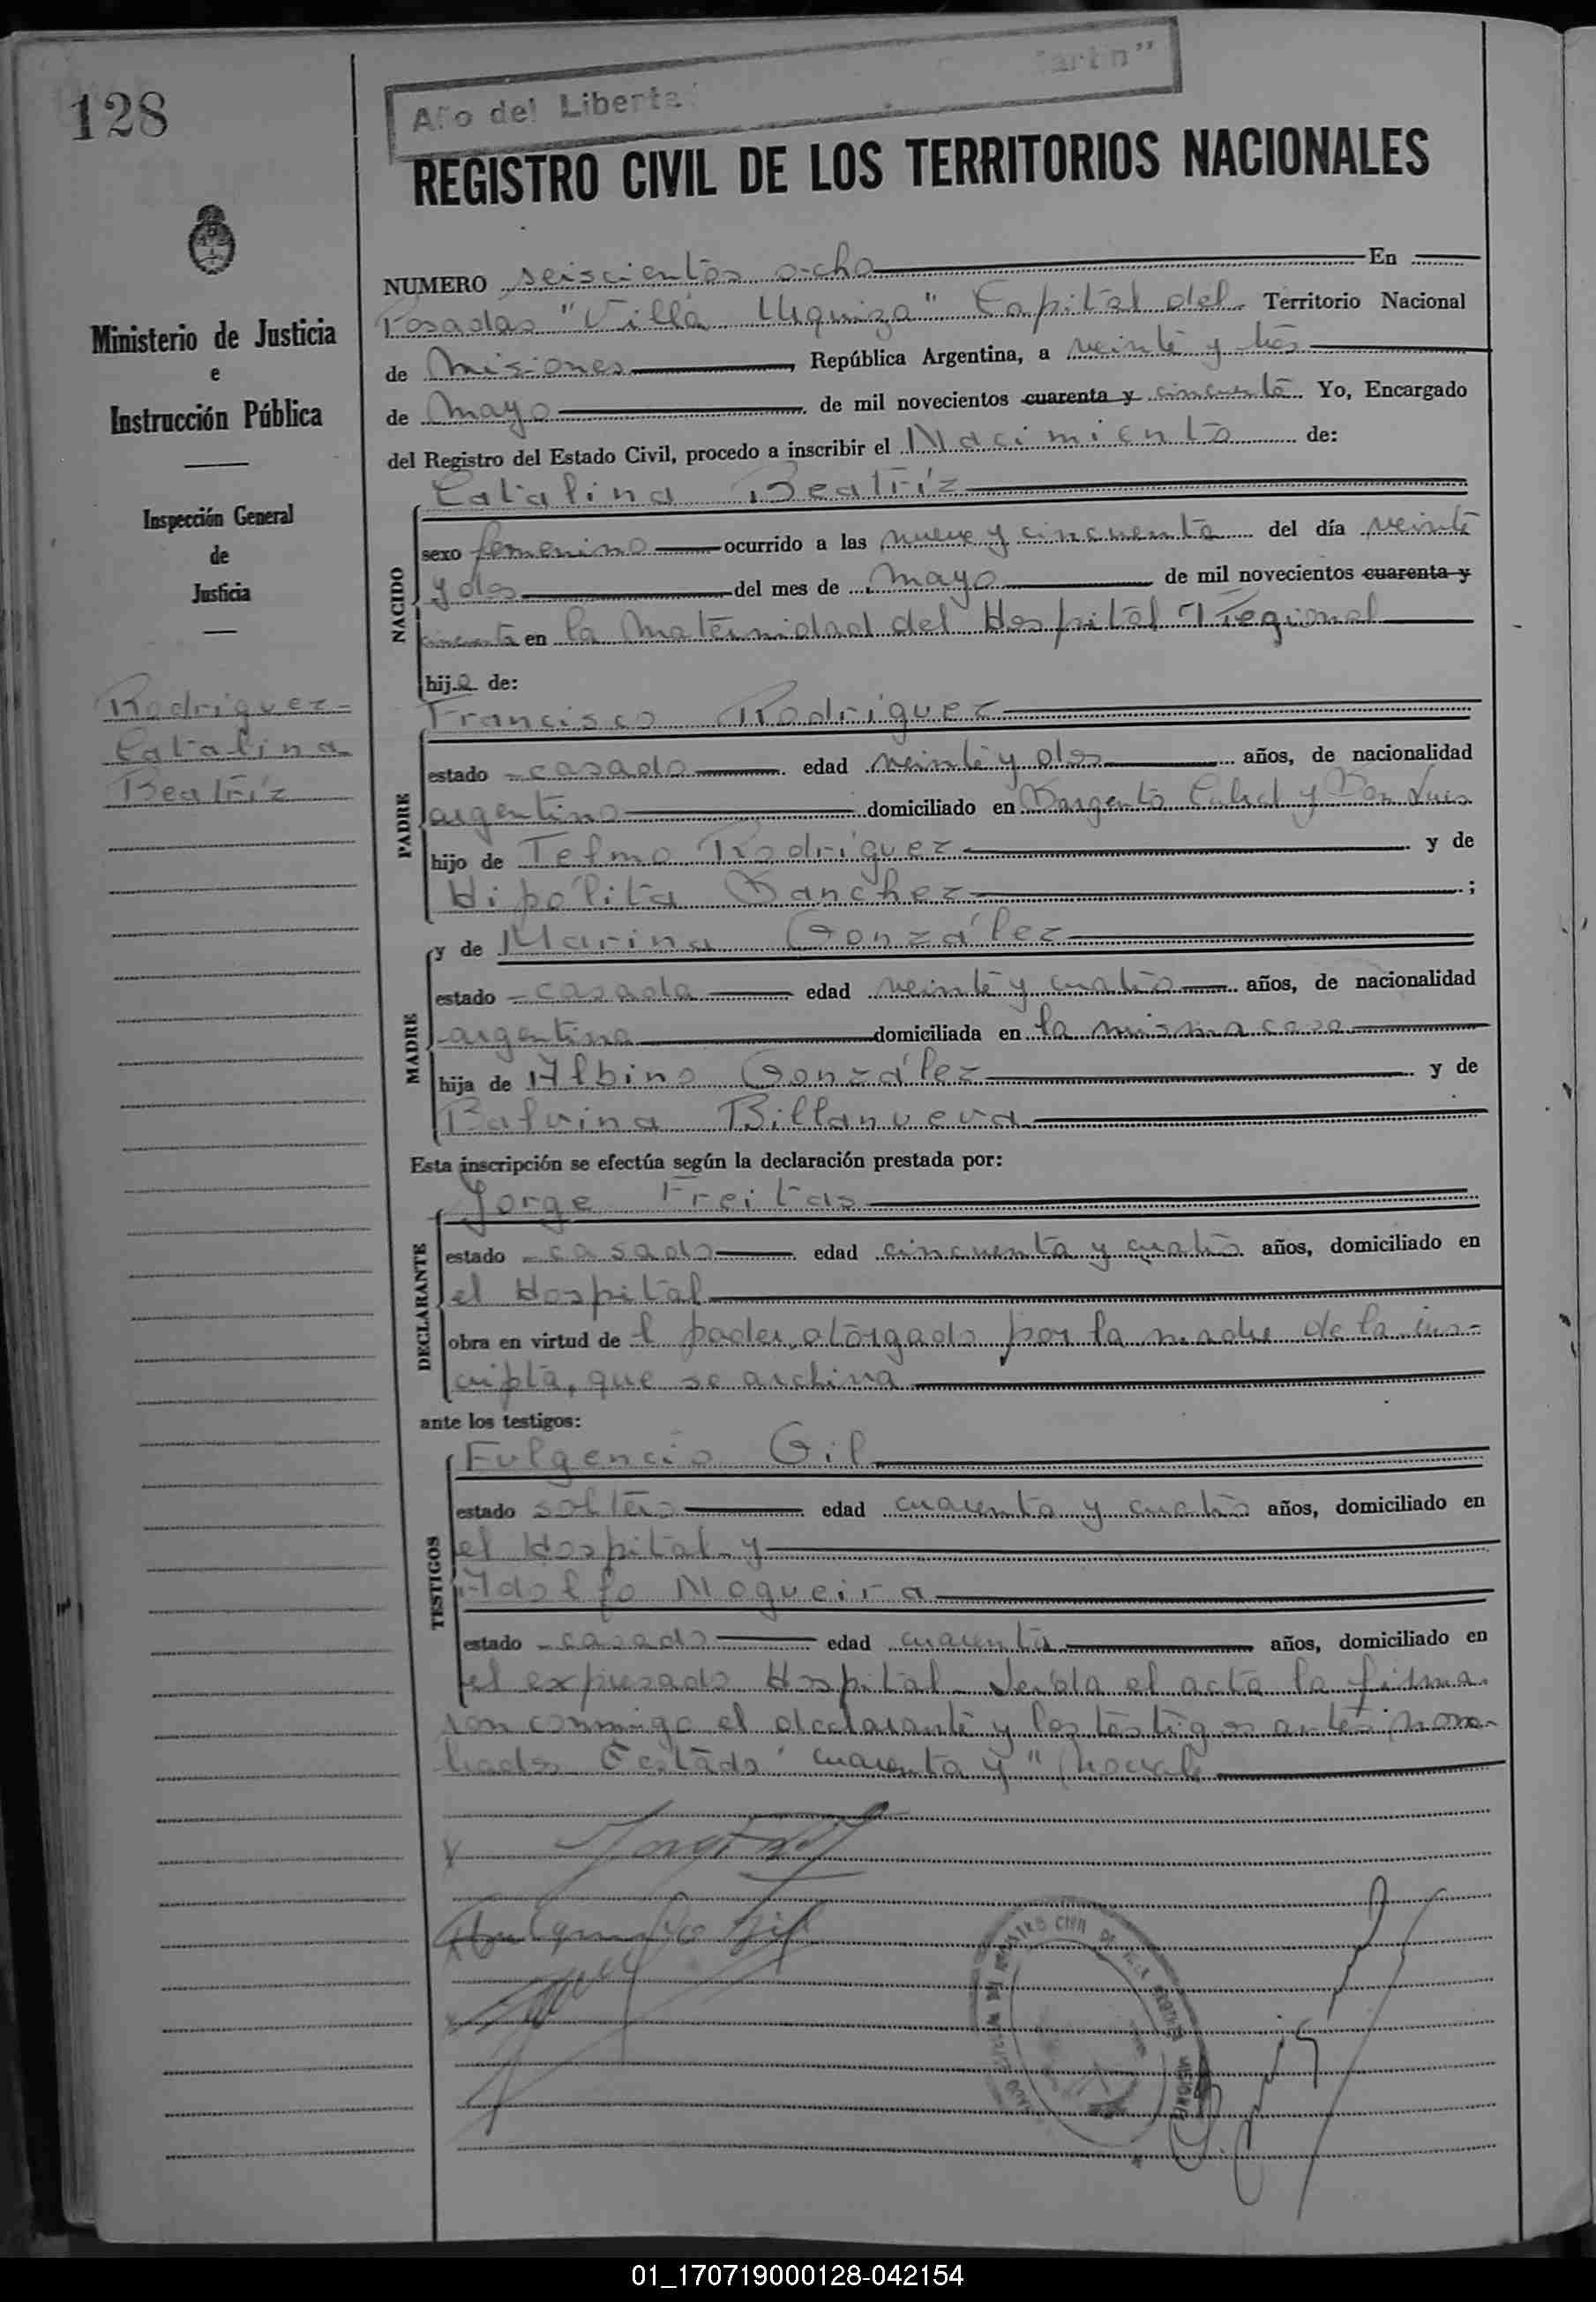 128
Año del Liberta
REGISTRO CIVIL DE LOS TERRITORIOS NACIONALES
Ministerio de Justicia
e
Instrucción Pública
Inspección General
de
Justicia
Rodriguez
Catalina
Beatriz
NUMERO seiscientos ocho En
Posadas "Villa Urquiza" Capital del Territorio Nacional
de Misiones, República Argentina, a veinte y tres
de mayo de mil novecientos cuarenta y cincuenta. Yo, Encargado
del Registro del Estado Civil, procedo a inscribir el Nacimiento de:
NACIDO
Catalina Beatríz
sexo femenino ocurrido a las nueve y cincuenta del día veinte
y dos del mes de mayo de mil novecientos cuarenta y
cincuenta en la Maternidad del Hospital Regional
hija de:
PADRE
Francisco Rodriguez
estado casado edad veinte y dos años, de nacionalidad
argentino domiciliado en Sargento Cabral y San Luis
hijo de Telmo Rodriguez y de
Hipólita Sanchez;
MADRE
y de Marina González
estado casada edad veinte y cuatro años, de nacionalidad
argentina domiciliada en la misma casa
hija de Albino González y de
Balvina Billanueva
Esta inscripción se efectúa según la declaración prestada por:
DECLARANTE
Jorge Freitas
estado casado edad cincuenta y cuatro años, domiciliado en
el Hospital
obra en virtud de l poder otorgado por la madre de la ins-
cripta, que se archiva
ante los testigos:
TESTIGOS
Fulgencio Gil
estado soltero edad cuarenta y cuatro años, domiciliado en
el Hospital y
Adolfo Nogueira
estado casado edad cuarenta años, domiciliado en
el expresado Hospital. Leída el acta la firma
ron conmigo el declarante y los testigos antes nom-
brados. Testado "cuarenta y" no vale
Fulgencio Gil
01_170719000128-042154